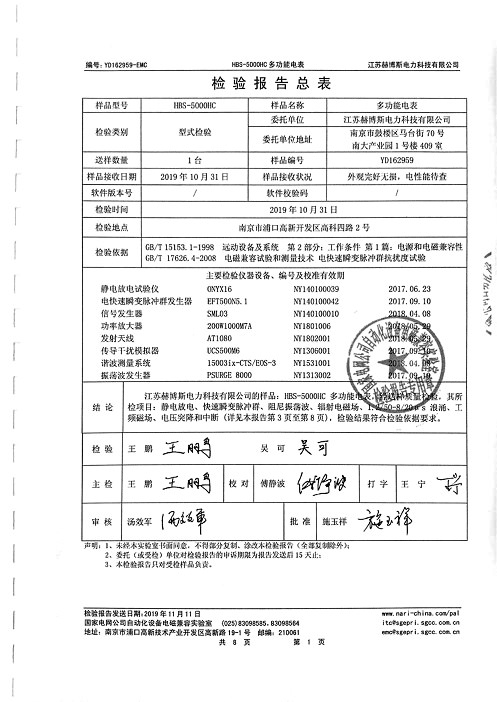 编号：YD162959-EMC HBS-5000HC 多功能电表 江苏赫博斯电力科技有限公司
检验报告总表
样品型号 HBS-5000HC 样品名称 多功能电表
检验类别 型式检验 委托单位 江苏赫博斯电力科技有限公司
委托单位地址 南京市鼓楼区马台街 70 号
南大产业园 1 号楼 409 室
送样数量 1 台 样品编号 YD162959
样品接收日期 2019 年 10 月 31 日 样品接收状况 外观完好无损，电性能待查
软件版本号 / 软件校验码 /
检验时间 2019 年 10 月 31 日
检验地点 南京市浦口高新开发区高科四路 2 号
检验依据 GB/T 15153.1-1998 远动设备及系统 第 2 部分：工作条件 第 1 篇：电源和电磁兼容性
GB/T 17626.4-2008 电磁兼容试验和测量技术 电快速瞬变脉冲群抗扰度试验
主要检验仪器设备、编号及校准有效期
静电放电试验仪 ONYX16 NY140100039 2017.06.23
电快速瞬变脉冲群发生器 EFT500N5.1 NY140100042 2017.09.10
信号发生器 SML03 NY140100010 2018.04.08
功率放大器 200W1000M7A NY1801006 2018/05.29
发射天线 AT1080 NY1802001 2018.05.29
传导干扰模拟器 UCS500M6 NY1306001 2017.09.10
谐波测量系统 15003ix-CTS/EOS-3 NY1531001 2018.04.08
振荡波发生器 PSURGE 8000 NY1313002 2017.09.10
结 论 江苏赫博斯电力科技有限公司的样品：HBS-5000HC 多功能电表，经送样质量检验，其所
检项目：静电放电、快速瞬变脉冲群、阻尼振荡波、辐射电磁场、1.2/50-8/20μs 浪涌、工
频磁场、电压突降和中断（详见本报告第 3 页至第 8 页），检验结果符合检验依据要求。
检 验 王 鹏 王鹏 吴 可 吴可
主 检 王 鹏 王鹏 校 对 傅静波 傅静波 打 字 王 宁
审 核 汤效军 汤效军 批 准 施玉祥 施玉祥
声明：1、未经本实验室书面同意，不得部分复制、涂改本检验报告（全部复制除外）；
2、委托（或受检）单位对检验报告的申诉期限为报告发送后 15 天止；
3、本检验报告只对受检样品负责。
检验报告发送日期：2019 年 11 月 11 日 www.nari-china.com/pal
国家电网公司自动化设备电磁兼容实验室 (025)83098585、83098564 itc@sgepri.sgcc.com.cn
地址：南京市浦口高新技术产业开发区高新路 19-1 号 邮编：210061 emc@sgepri.sgcc.com.cn
共 8 页 第 1 页